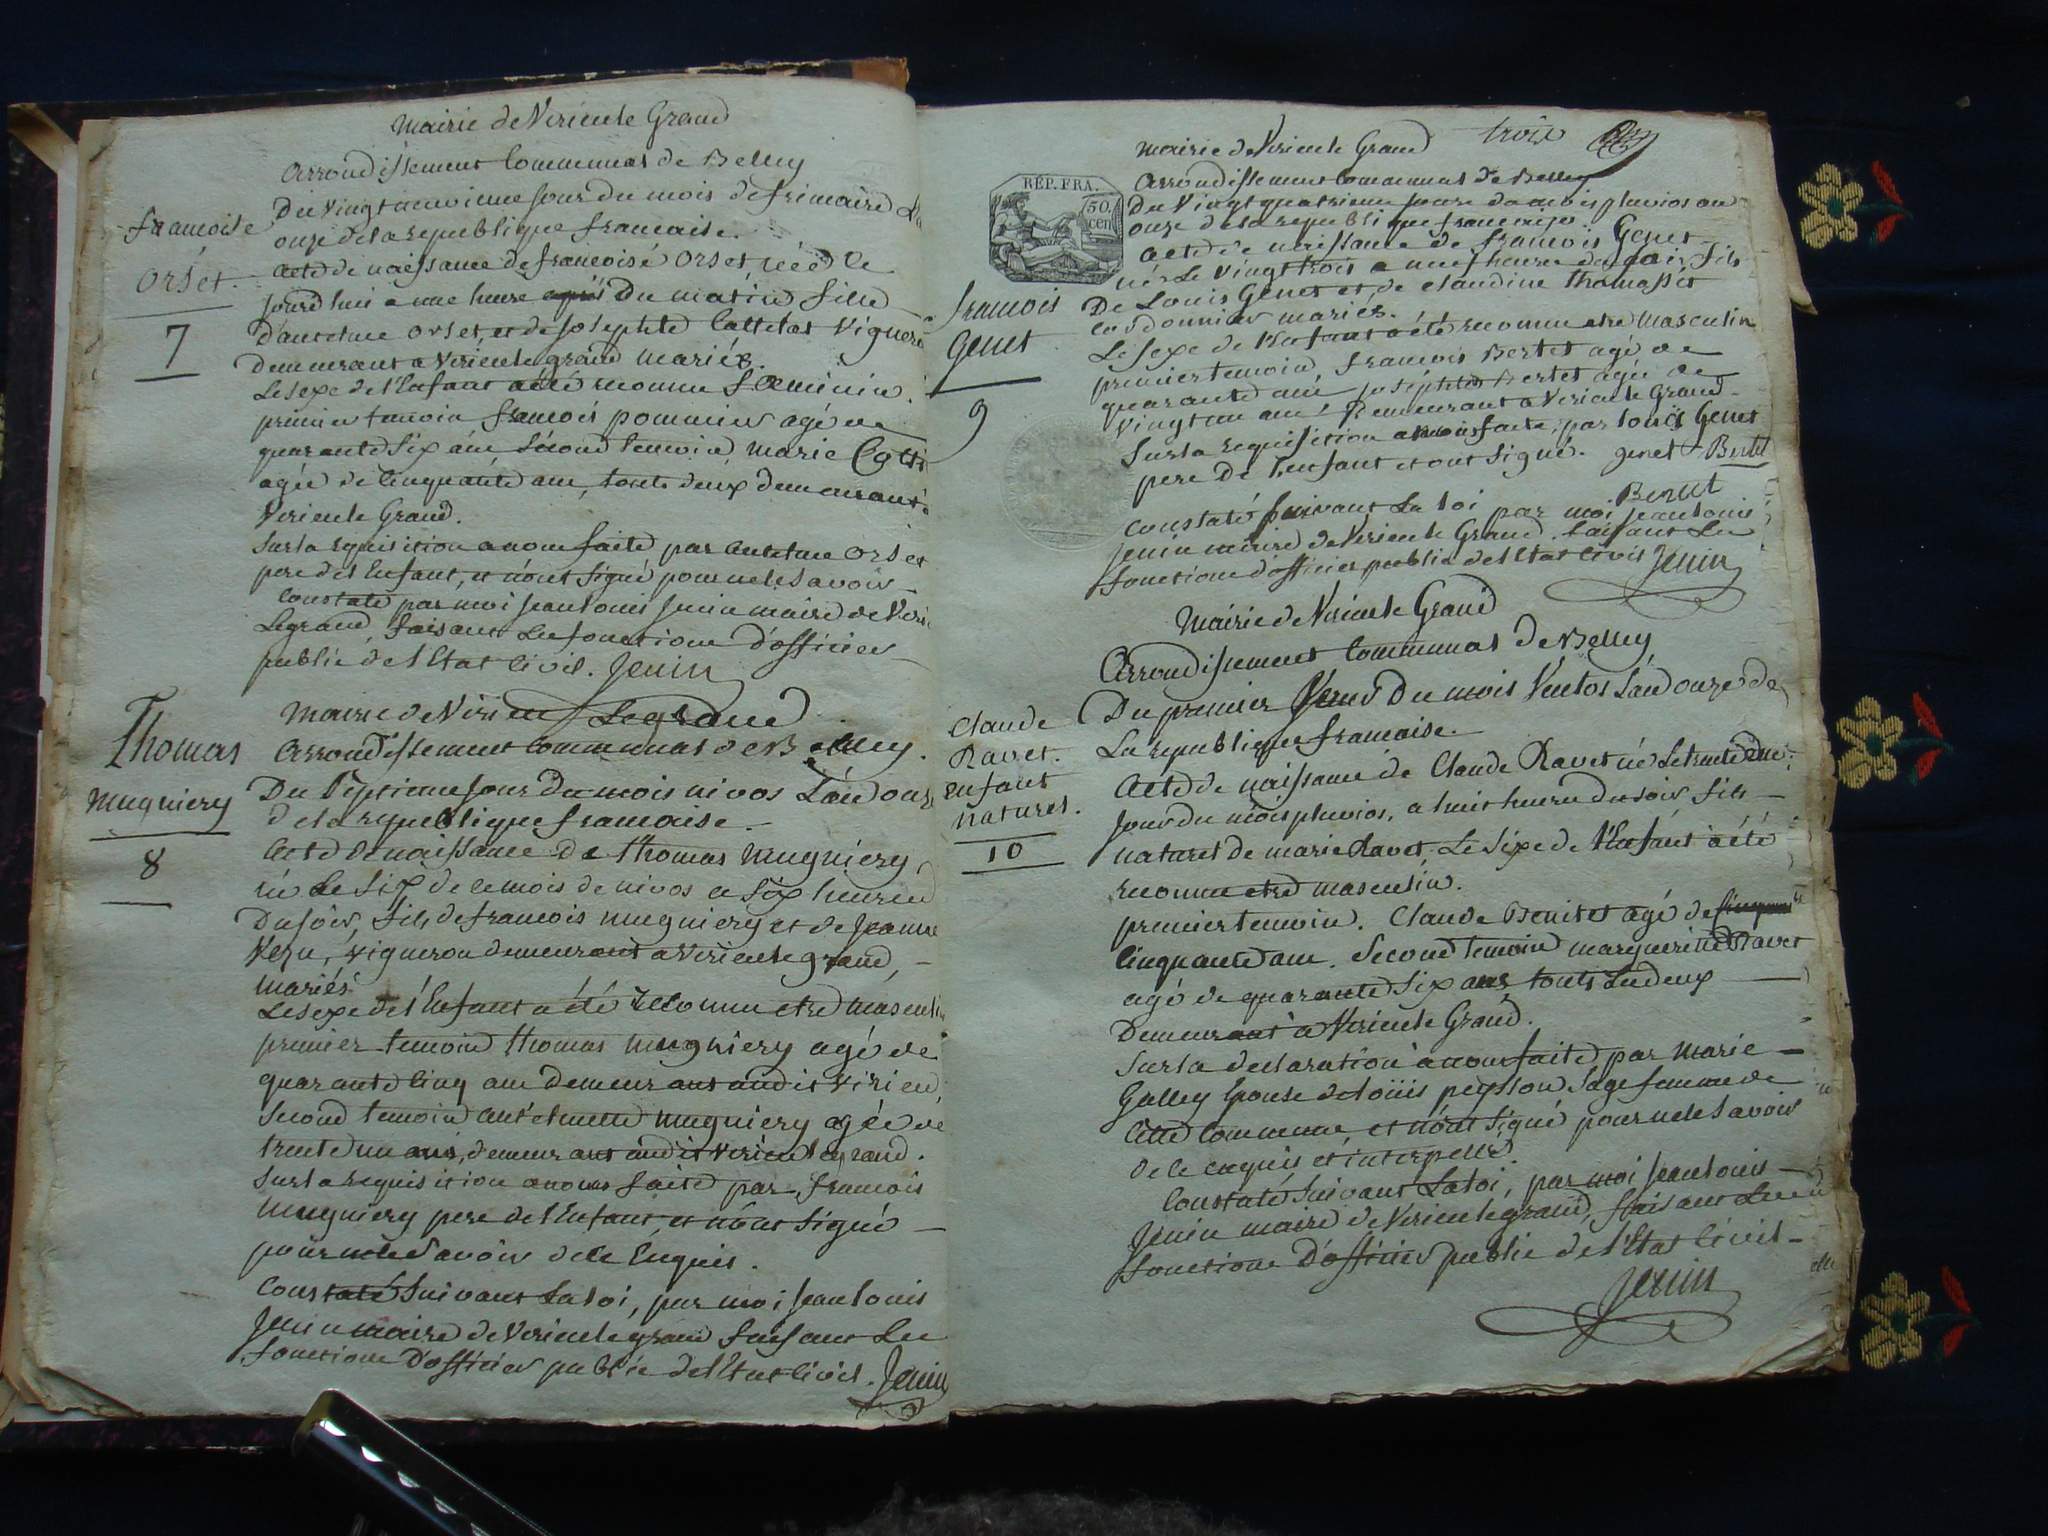 Mairie de Virieu le Grand
Arrondissement Communal de Belley
Du vingt neuvieme jour du mois de frimaire
onze de la republique francaise.
francoise
Orset.
7
Acte de naissance de francoise Orset, née le
jourd'hui a une heure après du matin fille
d'antelme Orset, et de josephte Cattelat vigneron
demeurant a virieu le grand mariés.
Le sexe de l'Enfant a été reconnu feminin.
premier temoin francois pommier agé de
quarante six ans second temoin, marie
agée de cinquante ans, touts deux demeurant a
Virieu le Grand.
Sur la requisition a nous faite par antelme Orset
pere de l'Enfant, et n'ont signé pour ne le savoir
Constaté par moi jean louis jenin maire de Viri
Legrand, faisant les fonctions d'officier
public de l'Etat Civil. Jenin
Mairie de Virieu Legrand
Arrondissement Communal de Belley.
Thomas
Mugniery
8
Du septieme jour du mois nivos L'an onze
de la republique francaise.
Acte de naissance de thomas Mugniery
né Le Six de ce mois de nivos a six heures
Du soir, fils de francois mugniery et de jeanne
Veru, vigneron demeurant a Virieu le grand,
mariés
Le sexe de l'Enfant a été reconnu etre masculin
premier temoin thomas mugniery agé de
quarante cinq ans demeurant audit virieu,
Second temoin antelmette mugniery agée de
trente un ans, demeurant audit virieu le grand.
Sur la requisition a nous faite par francois
Mugniery pere de l'Enfant, et n'ont signé
pour ne le savoir de ce Enquis.
Constaté Suivant la loi, par moi jean louis
Jenin maire de Virieu le grand faisant Les
fonctions d'officier public de l'Etat Civil. Jenin
Mairie de Virieu le Grand trois
Arrondissement Communal de Belley
RÉP. FRA.
50
cen
Du vingt quatrieme jour du mois pluvios an
onze de la republique francaise
Acte de naissance de francois Genet
né Le vingt trois a neuf heures du soir fils
De Louis Genet et de claudine thomasset
cordonnier mariés.
francois
Genet
9
Le sexe de l'Enfant a été reconnu etre masculin
premier temoin, francois Bertet agé de
quarante ans josephte Bertet agée de
vingt un ans Demeurant a Virieu le Grand
Sur la requisition a nous faite, par louis Genet
pere de l'enfant et ont signé. genet Bertet
Bertet
Constaté suivant La loi par moi jean louis
jenin maire de Virieu le Grand. faisant Les
fonctions d'officier public de l'Etat Civil Jenin
Mairie de Virieu le Grand
Arrondissement Communal de Belley
Du premier jour Du mois Ventos L'an onze de
La republique francaise.
Claude
Ravet.
enfant
naturel.
10
Acte de naissance de Claude Ravet né Le trentieme
jour du mois pluvios, a huit heures du soir fils
naturel de marie Ravet, Le sexe de l'Enfant a été
reconnu etre masculin.
premier temoin. Claude Benitet agé de
cinquante ans. Second temoin margueritte Ravet
agé de quarante six ans touts Les deux
Demeurant a Virieu le Grand.
Sur la declaration a nous faite par marie
Galley Epouse de loüis peysson sage femme de
Cette Commune et n'ont signé pour ne le savoir
de ce enquis et interpellé.
Constaté suivant La loi, par moi jean louis
Jenin maire de Virieu le grand, faisant Les
fonctions d'officier public de l'Etat Civil
Jenin